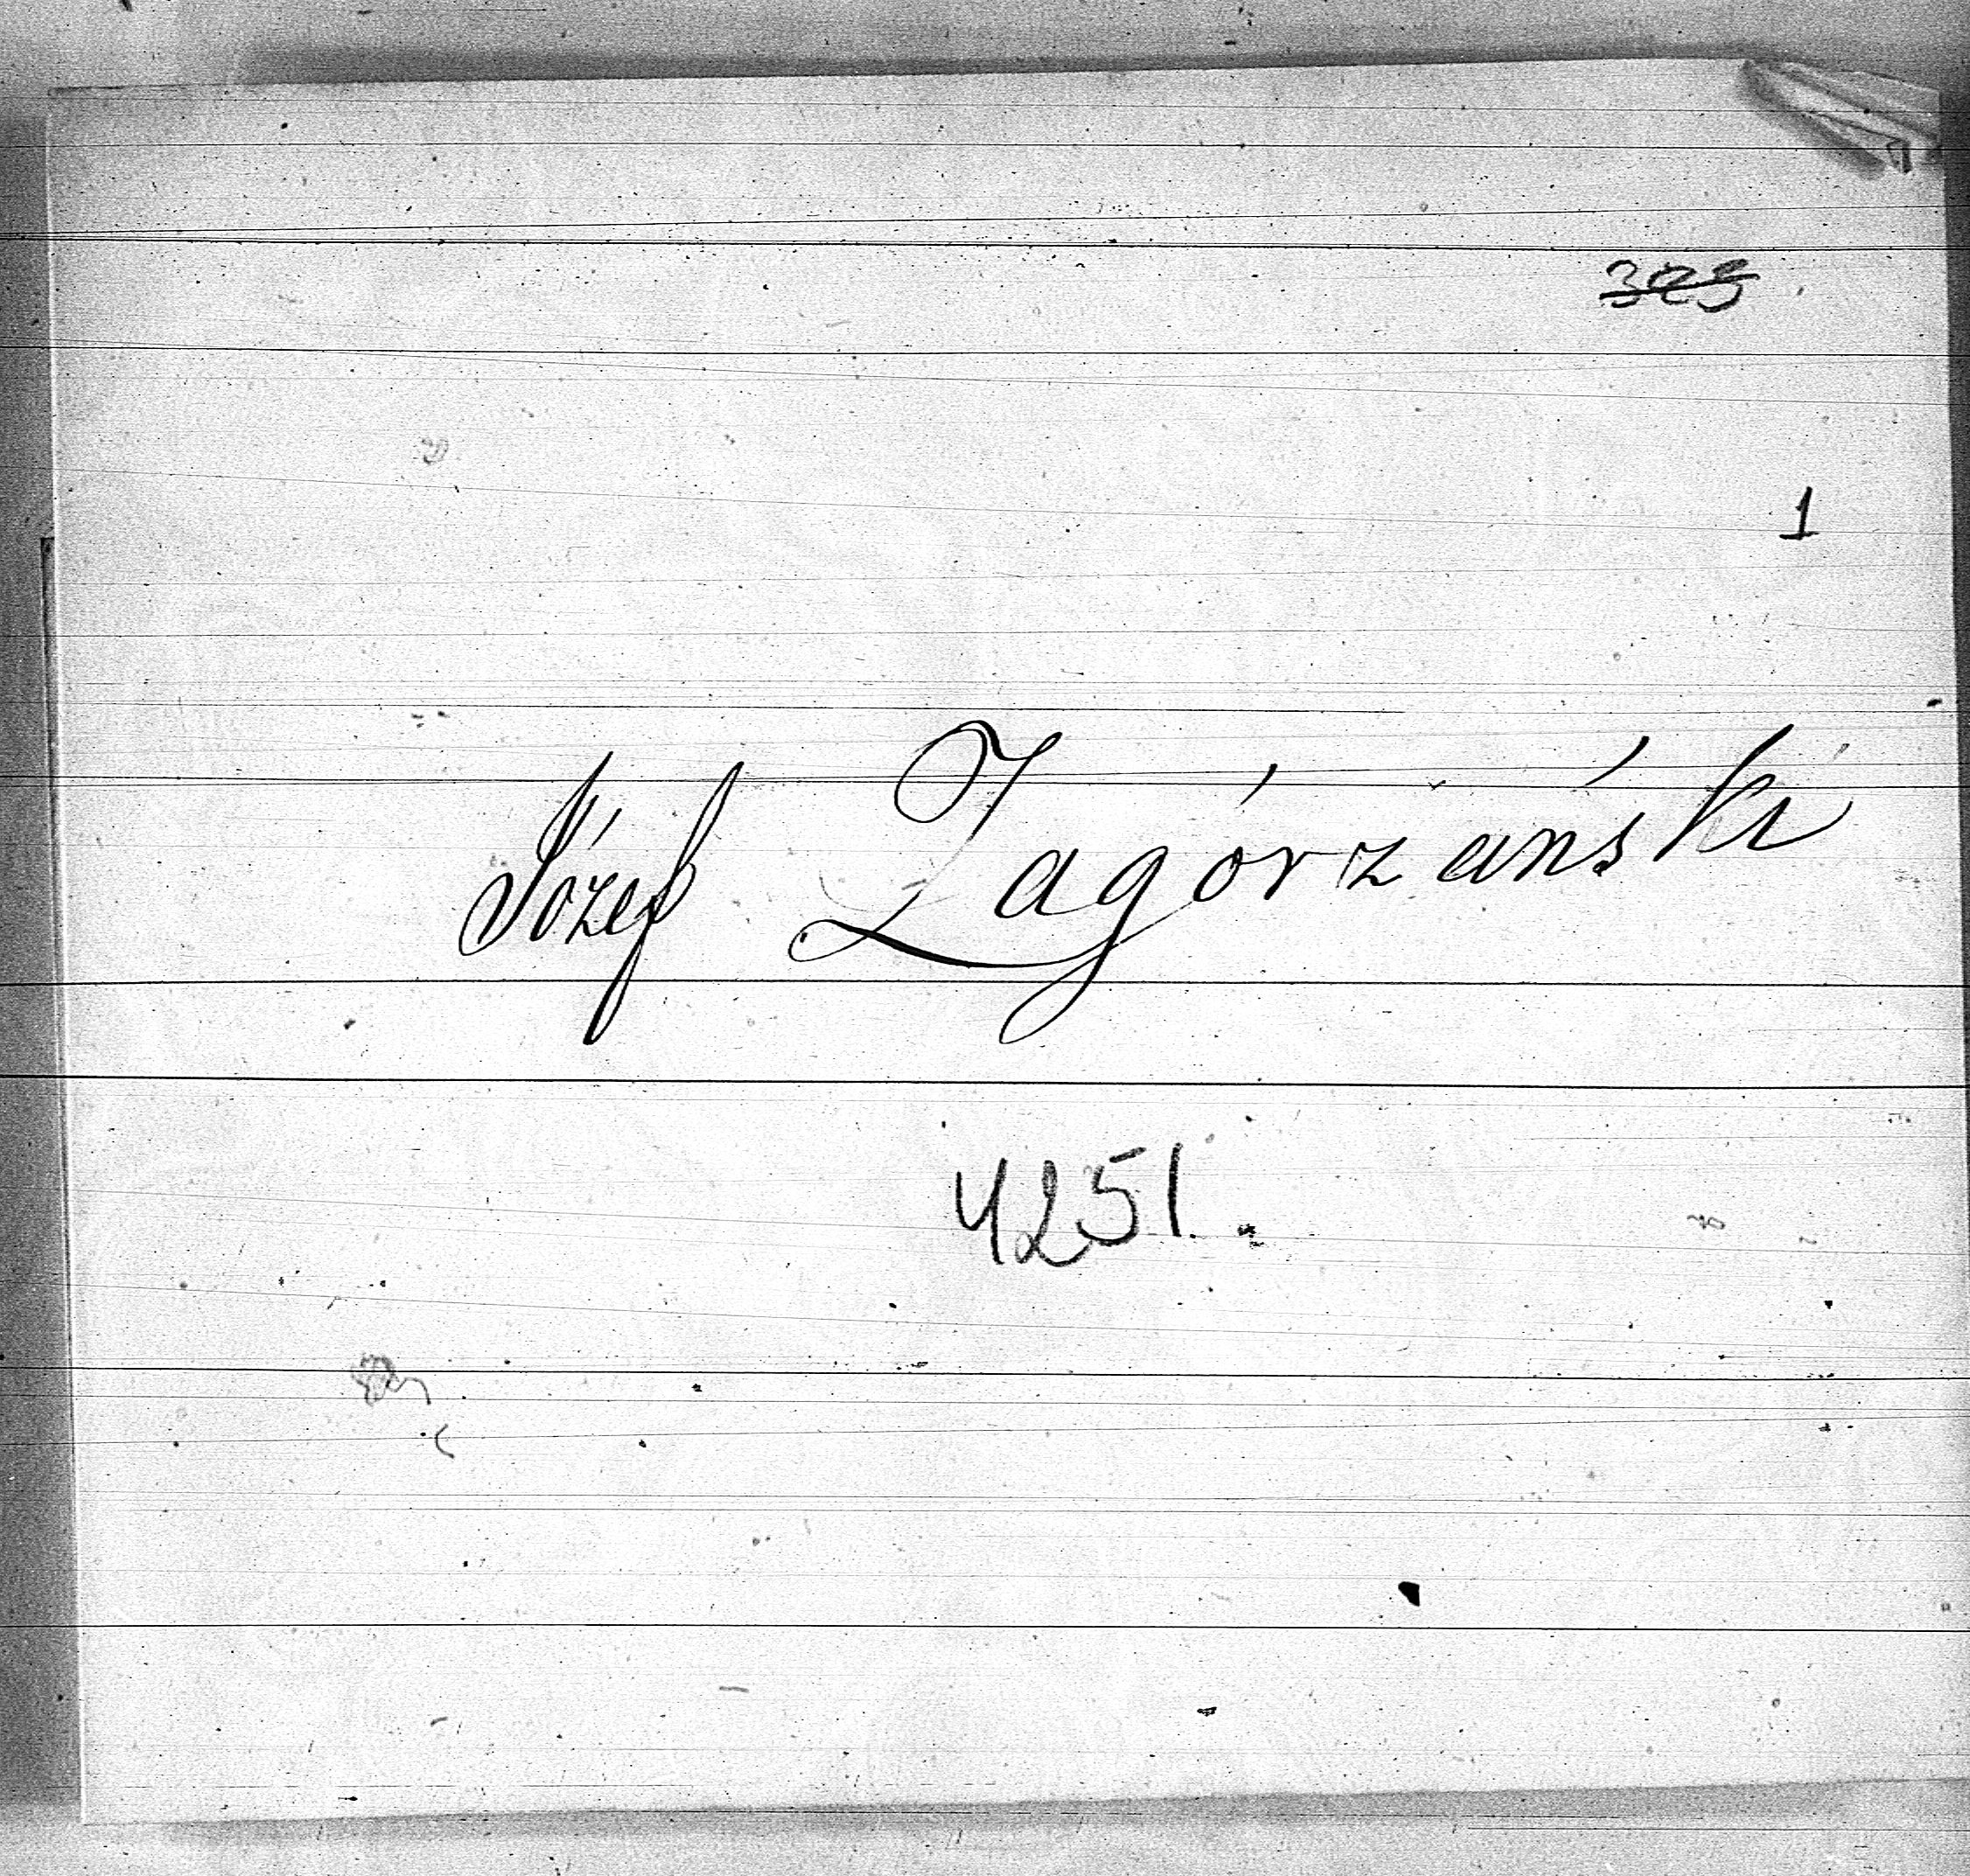 1
Józef Zagórzański
4251.